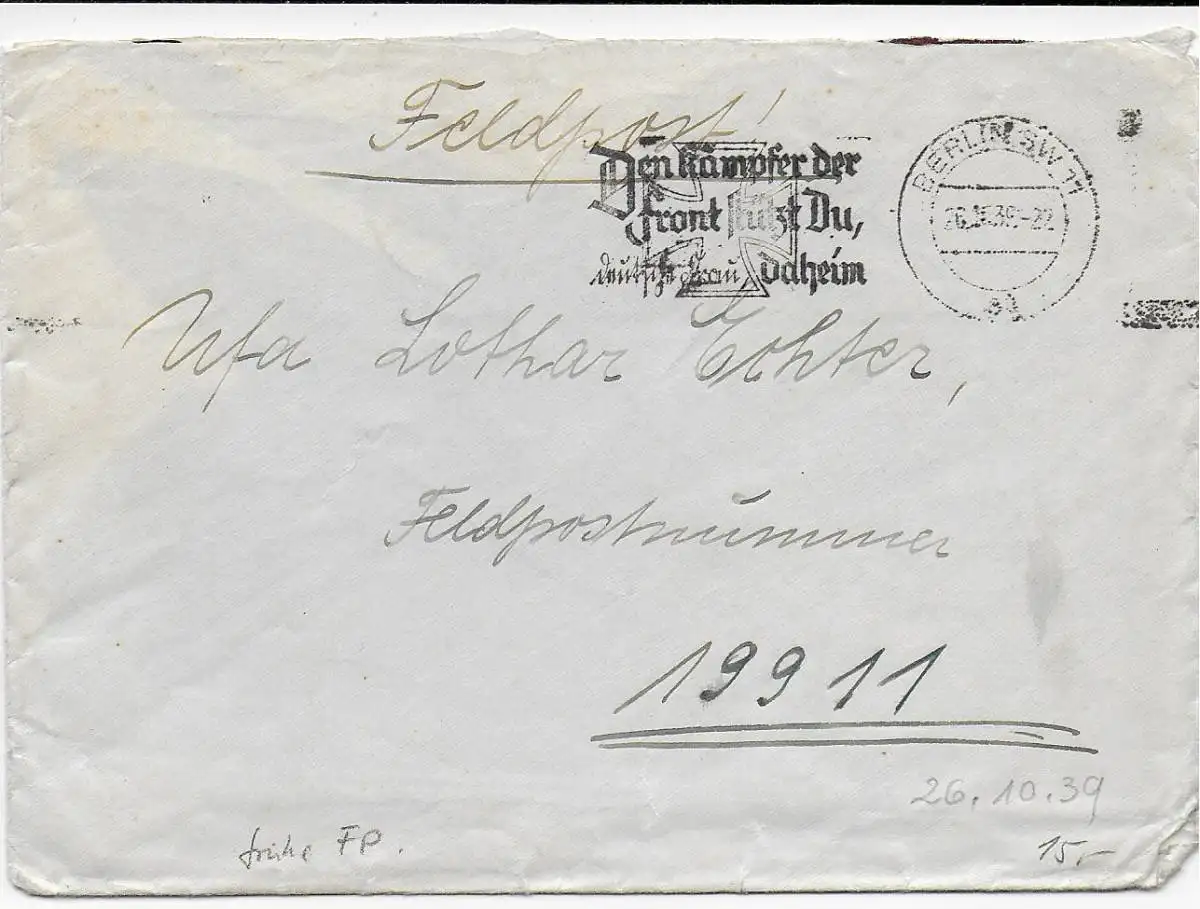 Feldpost!
Den Kämpfer der
Front stützt Du,
deutsche Frau, daheim
BERLIN SW 11
26.10.39.-22
Lothar Echter,
Feldpostnummer
19911
26.10.39
frühe FP.
15,-